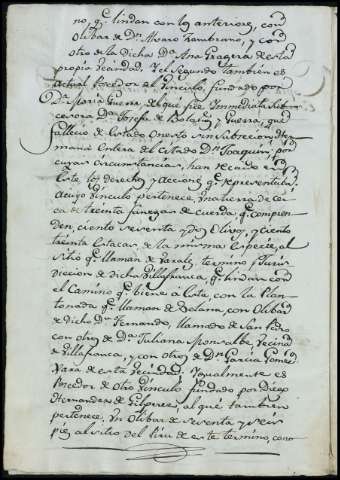 no, q.e lindan con los anteriores, con
Olibar de D.n Alvaro Zambrano, y con
otro de la Dicha D.a Ana Gragera de esta
propia Vecindad. Y el Segundo tambien es
actual Poseedor del Vinculo, fundado por
D.a Maria Guerra, del que fue Inmediata Sub-
cesora D.a Josefa de Bolaños y Guerra, que
fallecio de estado onesto sin Subcesion, Her-
mana entera del Citado D.n Joaquin, por
cuyas circunstancias, han recaido en
este los derechos y Acciones q.e representaba.
A cuyo Vinculo pertenece, una tierra de cer-
ca de treinta fanegas de cuerda, q.e compren-
den, ciento sesenta y dos Olivos, y ciento
treinta estacas, de la misma especie, al
sitio q.e llaman de termino y Juris-
diccion de dicha Villafranca, q.e lindan con
el Camino q.e biene á esta, con la Plan-
tonada q.e llaman de con Olibar
de Dicho D.n Fernando, llamado de San Pedro
con otro de D.a Juliana Monsalbe, Vecina
de Villafranca, y con otro de D.n Garcia Gomez
Jara de esta Vecindad. Igualmente es
Poseedor de otro Vinculo fundado por Diego
Hernandez de al que tambien
pertenece, Un Olibar de sesenta y seis
pies, al sitio del de este termino, como